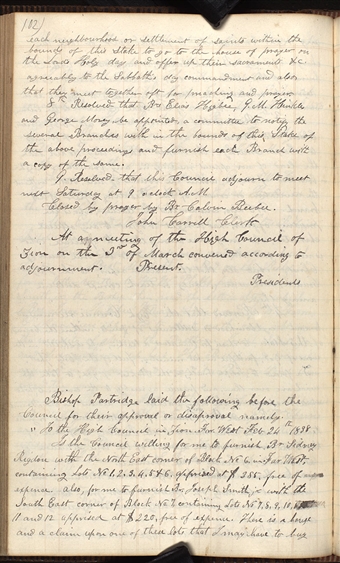 102)
each neighbourhood or settlement of saints within the
bounds of this Stake to go to the house of prayer on
the Lords Holy day and offer up their sacrament &c
agreeably to the Sabbath day commandment and also
that they meet together oft for preaching and prayer
8th Resolved that Brs Elias Higbee, G. M. Hinkle
and George Morey be appointed a committee to notify the
several Branches with in the bounds of this Stake of
the above proceedings and furnish each Branch with
a copy of the same.
9. Resolved that this Council adjourn to meet
next Saturday at 9 oclock A.M
Closed by prayer by Br Calvin Beebe.
John Corrill Clerk
At a meeting of the High Council of
Zion on the 3rd of March convened according to
adjournment. Present.
Presidents
Bishop Partridge laid the following before the
Council for their approval or disaproval namely.
" To the High Council in Zion Far West Feb 24th 1838
Is the Council willing for me to furnish Br Sidney
Rigdon with the North East corner of Block No 6, in Far West,
containing Lots No 1, 2, 3, 4, 5 & 6, apprised at $ 255, free of
expence. also, for me to furnish Br Joseph Smith, jr with the
South East corner of Block No 7 containing Lots No 7, 8, 9, 10,
11 and 12 apprised at $ 220, free of expence. There is a house
and a claim upon one of these lots that I may have to buy